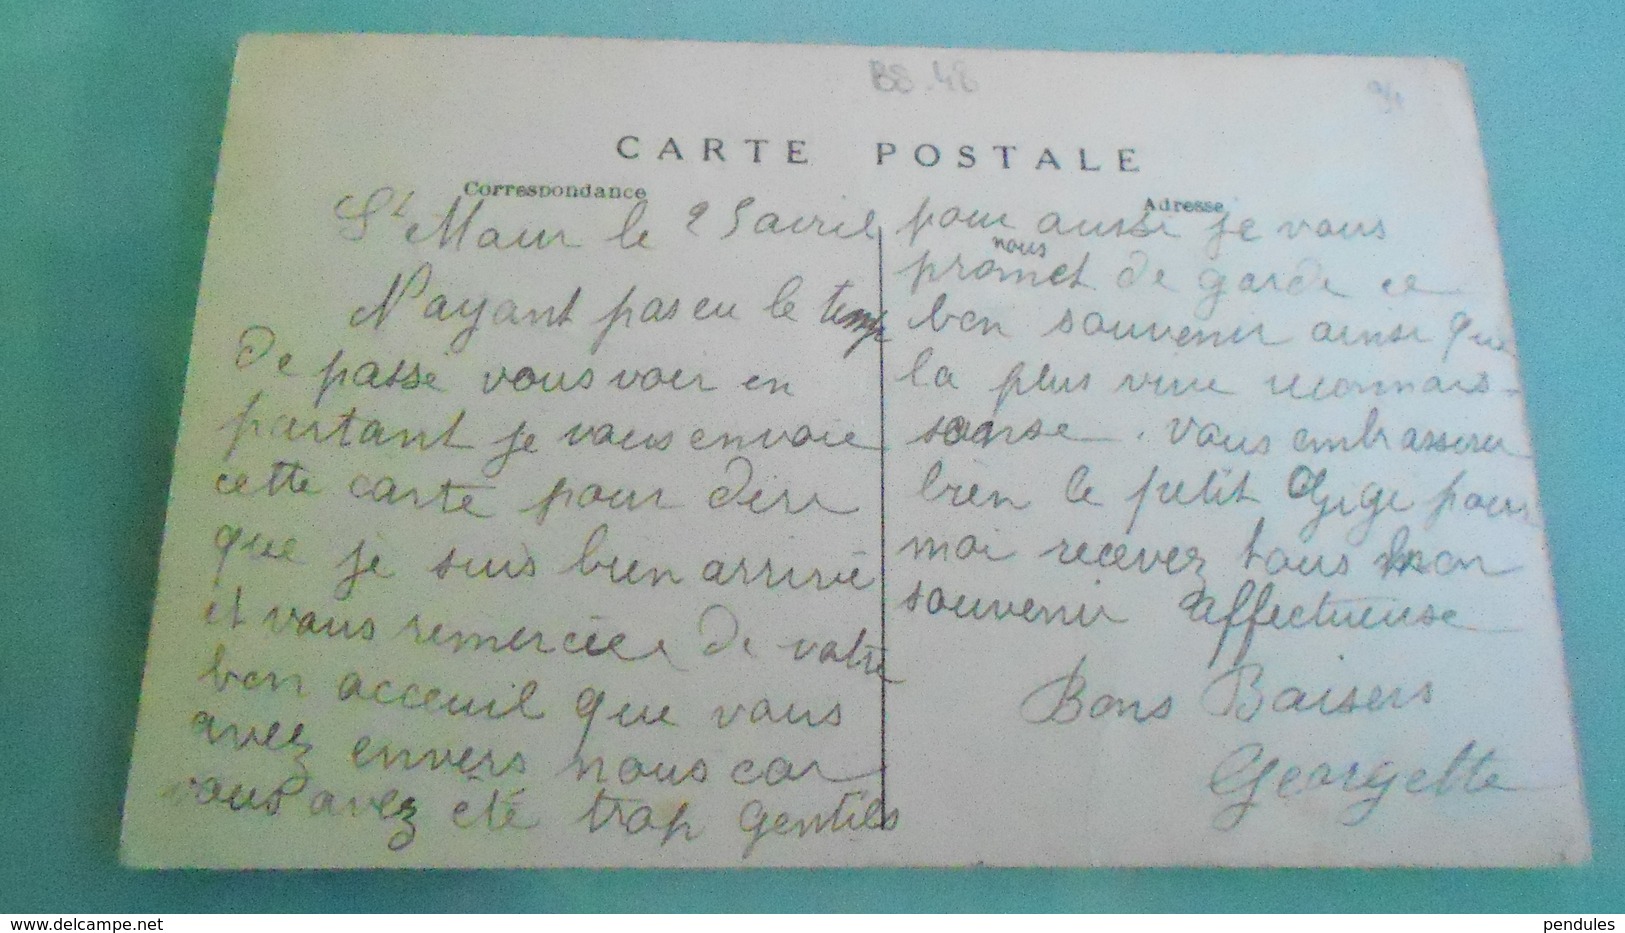 BS.48
CARTE POSTALE
Correspondance
Adresse
St Maur le 25 avril
N'ayant pas eu le temp
de passé vous voir en
partant je vous envoie
cette carte pour dire
que je suis bien arrivé
et vous remercie de votre
bon acceuil que vous
avez envers nous car
vous avez été trop gentils
pour aussi je vous
nous
promet de garde ce
bon souvenir ainsi que
la plus vive reconnais-
sanse. Vous embrasserer
bien le petit Gigi pour
moi recevez tous mon
souvenir affectueuse
Bons Baisers
Georgette
www.delcampe.net
pendules